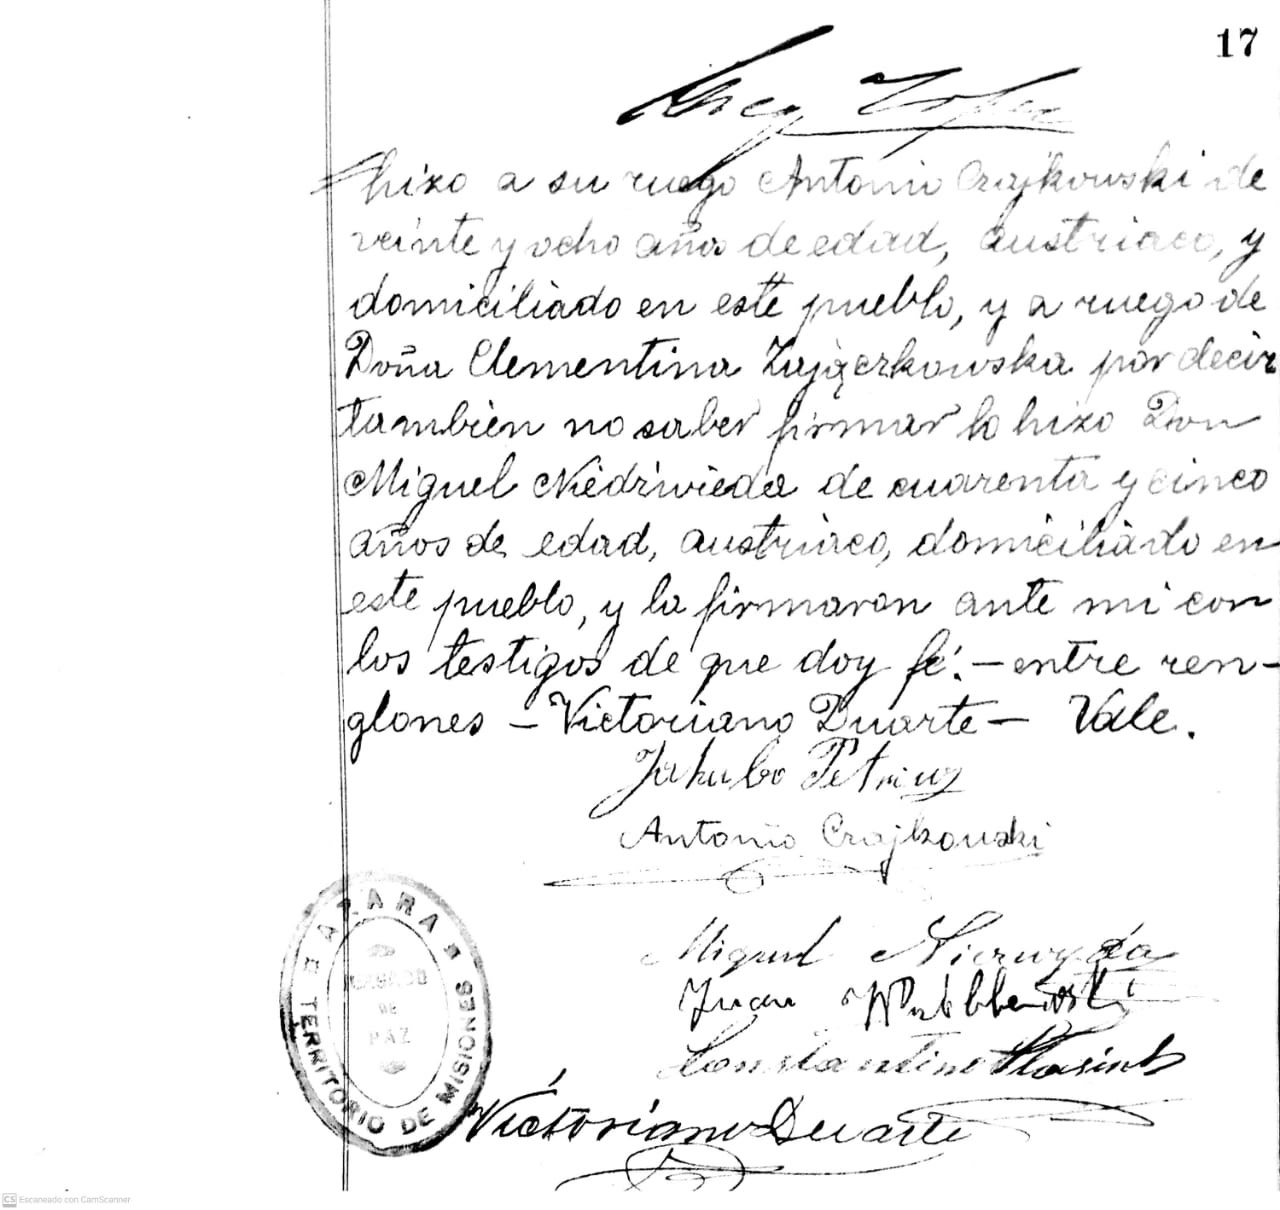 17
Greg Lopez
hizo a su ruego Antonio Czajkowski de
veinte y ocho años de edad, austriaco, y
domiciliado en este pueblo, y a ruego de
Doña Clementina Zajączkowska por decir
también no saber firmar lo hizo Don
Miguel Niedźwieda de cuarenta y cinco
años de edad, austriaco, domiciliado en
este pueblo, y la firmaron ante mi con
los testigos de que doy fé. — entre ren-
glones — Victoriano Duarte — Vale.
Jakubo
Antonio Czajkowski
Miguel
Juan
Constantino
Victoriano Duarte
AZARA
TERRITORIO DE MISIONES
JUZGADO
DE
PAZ
CS Escaneado con CamScanner